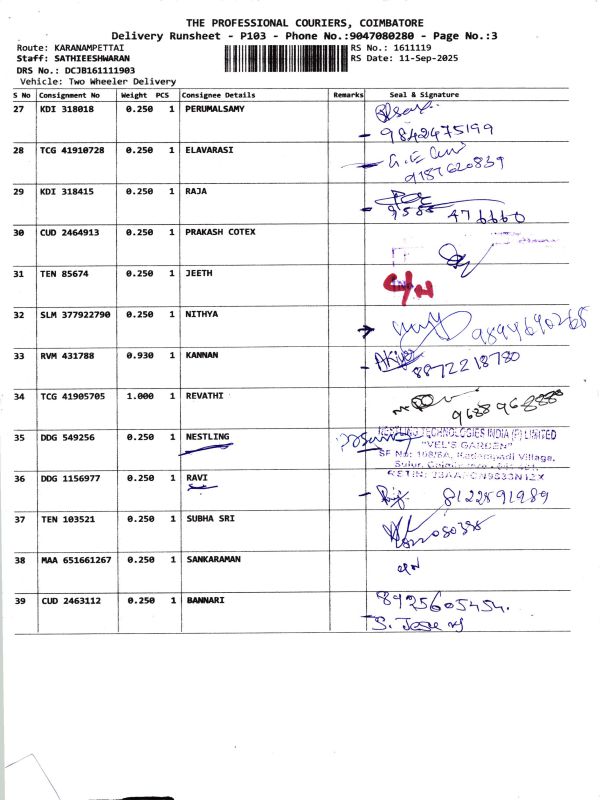 THE PROFESSIONAL COURIERS, COIMBATORE
Delivery Runsheet - P103 - Phone No.:9047080280 - Page No.:3
Route: KARANAMPETTAI RS No.: 1611119
Staff: SATHIEESHWARAN RS Date: 11-Sep-2025
DRS No.: DCJB161111903
Vehicle: Two Wheeler Delivery
S No Consignment No Weight PCS Consignee Details Remarks Seal & Signature
27 KDI 318018 0.250 1 PERUMALSAMY
9842475199
28 TCG 41910728 0.250 1 ELAVARASI
9187620839
29 KDI 318415 0.250 1 RAJA
476660
30 CUD 2464913 0.250 1 PRAKASH COTEX
31 TEN 85674 0.250 1 JEETH
32 SLM 377922790 0.250 1 NITHYA
9894690268
33 RVM 431788 0.930 1 KANNAN
8872218780
34 TCG 41905705 1.000 1 REVATHI
35 DDG 549256 0.250 1 NESTLING
NESTLING TECHNOLOGIES INDIA (P) LIMITED
"VEL'S GARDEN"
Village,
36 DDG 1156977 0.250 1 RAVI
8122591989
37 TEN 103521 0.250 1 SUBHA SRI
38 MAA 651661267 0.250 1 SANKARAMAN
39 CUD 2463112 0.250 1 BANNARI
8925605454.